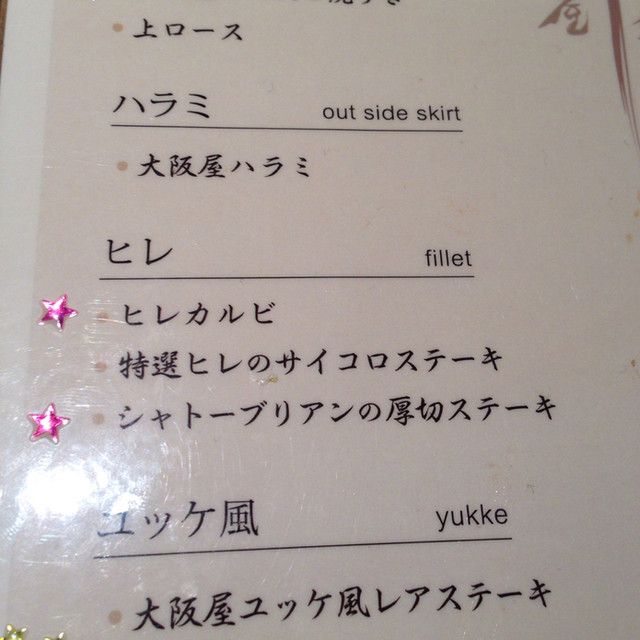 上ロース
ハラミ out side skirt
大阪屋ハラミ
ヒレ fillet
ヒレカルビ
特選ヒレのサイコロステーキ
シャトーブリアンの厚切ステーキ
ユッケ風 yukke
大阪屋ユッケ風レアステーキ